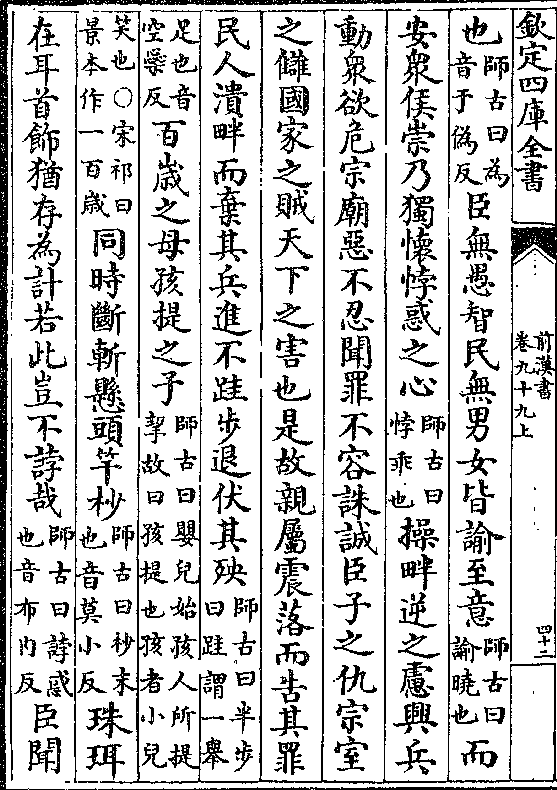 欽定四庫全書
前漢書
卷九十九上
四十二
也師古曰為音于偽反臣無愚智民無男女皆諭至意師古曰諭曉也而
安衆侯崇乃獨懷悖惑之心師古曰悖乖也操畔逆之慮興兵
動衆欲危宗廟惡不忍聞罪不容誅誠臣子之仇宗室
之讎國家之賊天下之害也是故親屬震落而告其罪
民人潰畔而棄其兵進不跬步退伏其殃師古曰半步曰跬謂一舉
足也音空橤反百歳之母孩提之子師古曰嬰兒始孩人所提挈故曰孩提也孩者小兒
笑也○宋祁曰景本作一百歳同時斷斬懸頭竿杪師古曰杪末也音莫小反珠珥
在耳首飾猶存為計若此豈不誖哉師古曰誖惑也音布内反臣聞